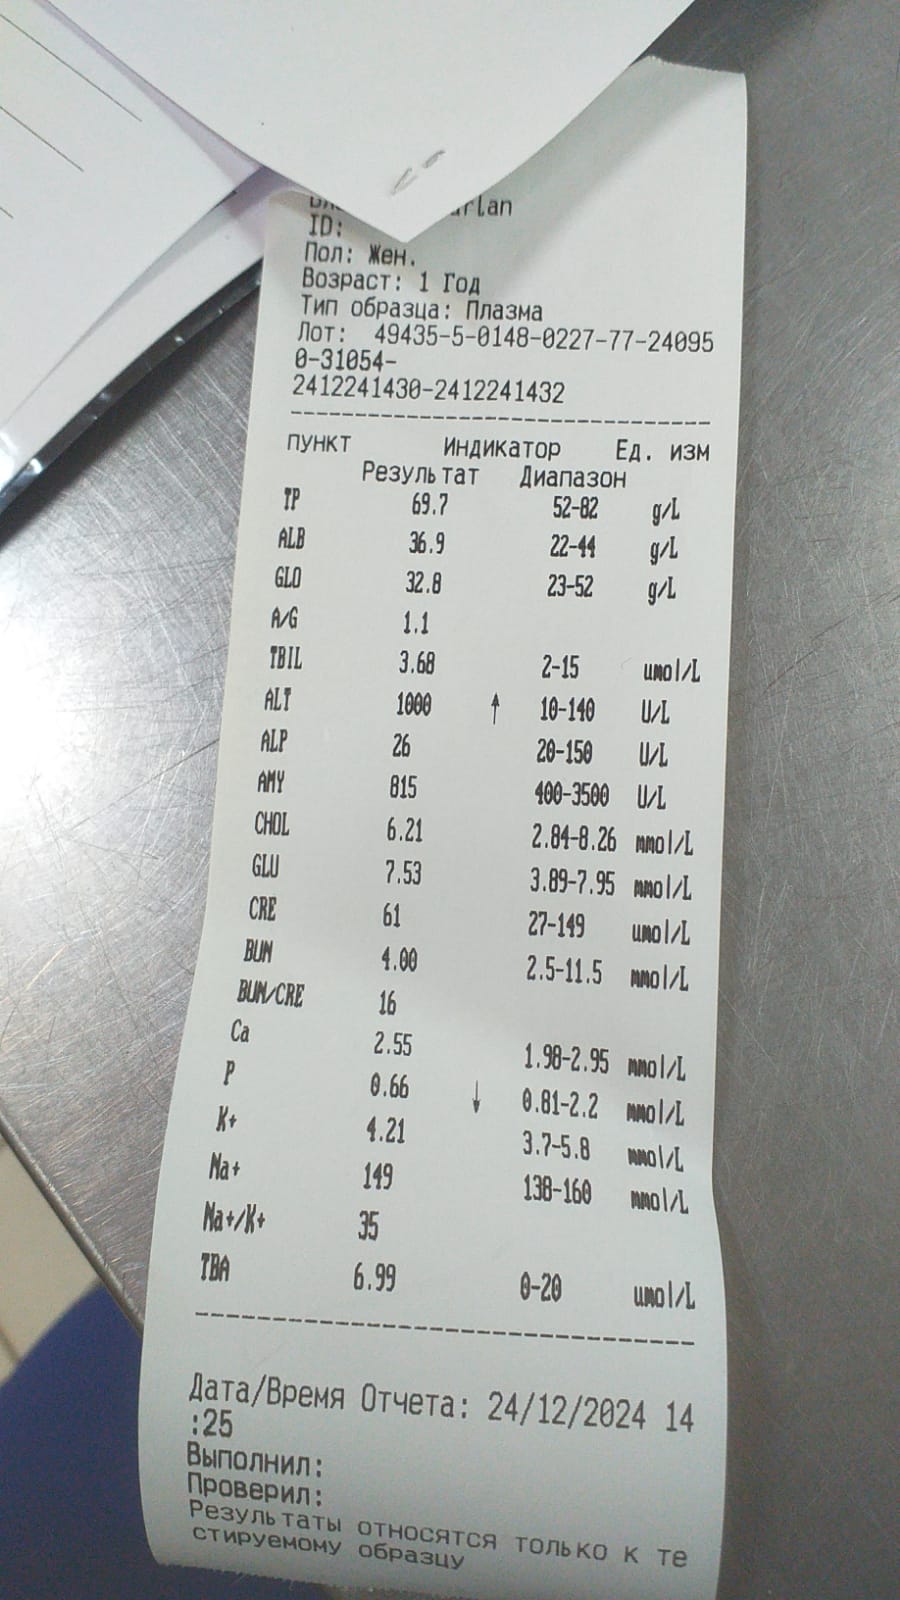 ID:
Пол: Жен.
Возраст: 1 Год
Тип образца: Плазма
Лот: 49435-5-0148-0227-77-24095
0-31054-
2412241430-2412241432
ПУНКТ Индикатор Ед. изм
Результат Диапазон
TP 69.7 52-82 g/L
ALB 36.9 22-44 g/L
GLO 32.8 23-52 g/L
A/G 1.1
TBIL 3.68 2-15 umol/L
ALT 1000 ↑ 10-140 U/L
ALP 26 20-150 U/L
AMY 815 400-3500 U/L
CHOL 6.21 2.84-8.26 mmol/L
GLU 7.53 3.89-7.95 mmol/L
CRE 61 27-149 umol/L
BUN 4.00 2.5-11.5 mmol/L
BUN/CRE 16
Ca 2.55 1.98-2.95 mmol/L
P 0.66 ↓ 0.81-2.2 mmol/L
K+ 4.21 3.7-5.8 mmol/L
Na+ 149 138-160 mmol/L
Na+/K+ 35
TBA 6.99 0-20 umol/L
Дата/Время Отчета: 24/12/2024 14
:25
Выполнил:
Проверил:
Результаты относятся только к те
стируемому образцу